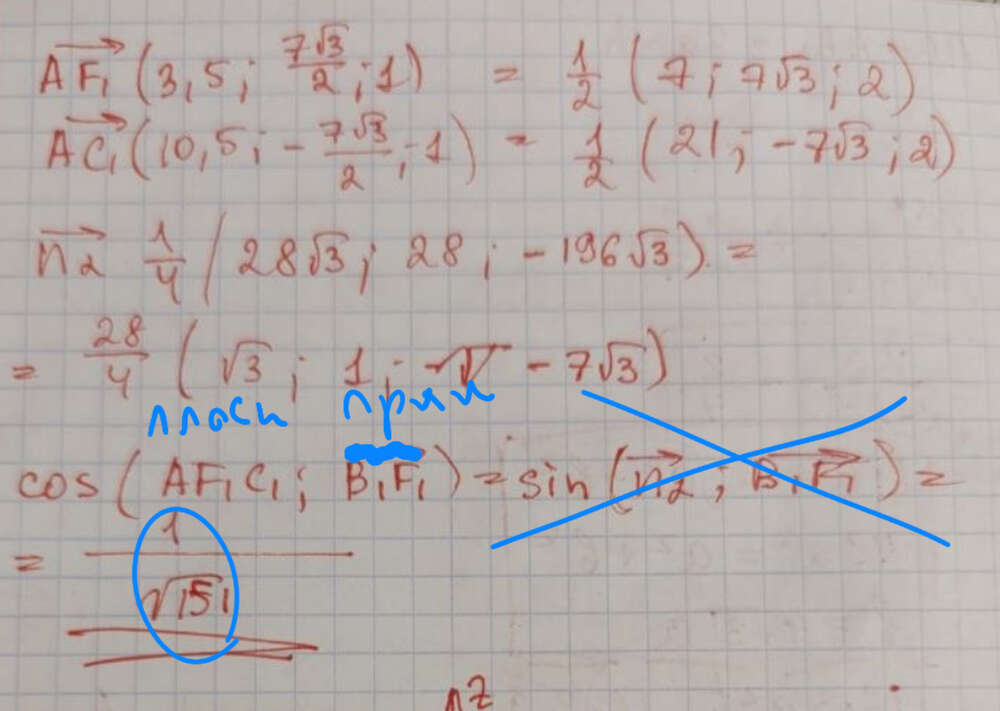 AF₁ (3,5; 7√3/2; 1) = 1/2 (7; 7√3; 2)
AC₁ (10,5; -7√3/2; 1) = 1/2 (21; -7√3; 2)
n₂ 1/4 (28√3; 28; -196√3) =
= 28/4 (√3; 1; - 7√3)
плоск прям
cos (AF₁C₁; B₁F₁) = sin (n₂; B₁F₁) =
= 1/√151